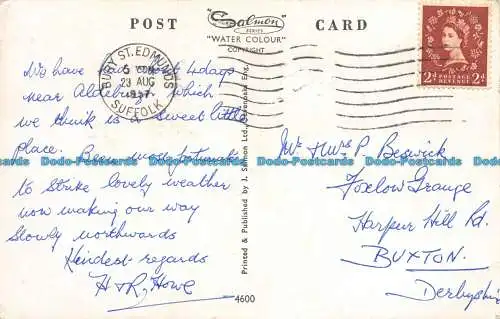 POST
Salmon
SERIES
"WATER COLOUR"
COPYRIGHT
CARD
BURY ST. EDMUNDS
5 PM
23 AUG
1957
SUFFOLK
2d POSTAGE REVENUE 2d
We have had about 4 days
near Aldeburgh which
we think is a sweet little
place. Been most fortunate
to strike lovely weather
now making our way
slowly northwards
Kindest regards
H & R Howe
Printed & Published by J. Salmon Ltd., Sevenoaks, Eng.
4600
Mr & Mrs P Beswick
Foxlow Grange
Harpur Hill Rd.
BUXTON.
Derbyshire
Dodo-Postcards Dodo-Postcards Dodo-Postcards Dodo-Postcards
Dodo-Postcards Dodo-Postcards Dodo-Postcards Dodo-Postcards